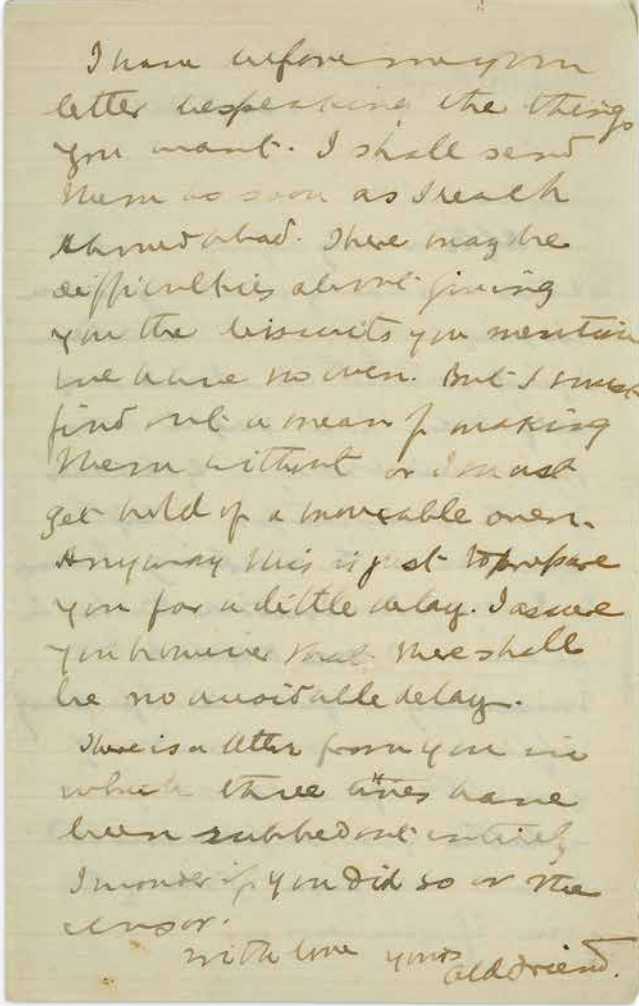 I have before me your
letter bespeaking the things
you want. I shall send
them as soon as I reach
Ahmedabad. There may be
difficulties about giving
you the biscuits you mention
we have no oven. But I must
find out a means of making
them without or I must
get hold of a moveable oven.
Anyway this is just to prepare
you for a little delay. I assure
you however that there shall
be no avoidable delay.
There is a letter from you in
which three lines have
been rubbed out entirely
I wonder if you did so or the
censor.
with love yours
old friend.